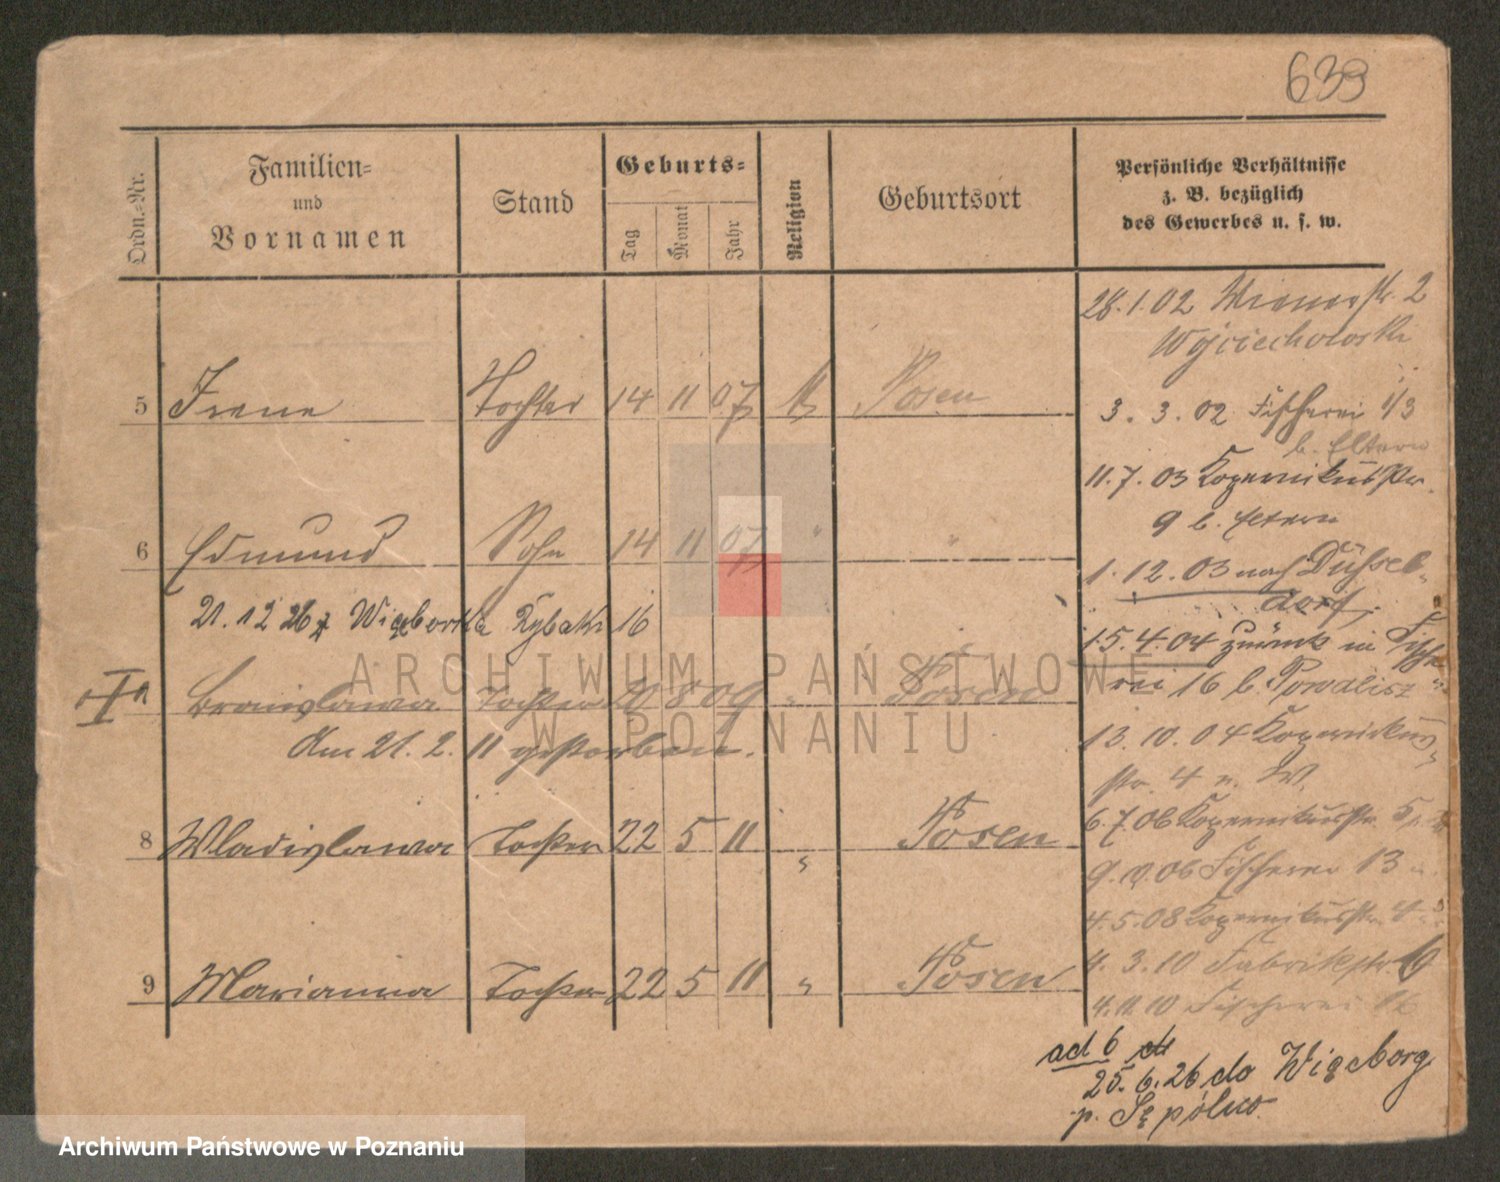 639
Ordn.-Nr.
Familien-
und
Vornamen
Stand
Geburts-
Tag
Monat
Jahr
Religion
Geburtsort
Persönliche Verhältnisse
z. B. bezüglich
des Gewerbes u. s. w.
28.1.02 Wienerstr. 2
Wojciechowski
5 Irene Tochter 14 11 07 Posen
3. 3. 02 Fischerei 1/3
b. Eltern
11.7.03 Kopernikusstr.
9 b. Eltern
6 Edmund Sohn 14 11 07 " "
1.12.03 nach Düssel-
dorf.
21.12 26 z Więcborka Rybaki 16
15.4.04 zurück in Fische-
rei 16 b. Powalisz
Bronislawa Tochter 20 8 09 " Posen
Am 21. 2. 11 gestorben.
13.10.04 Kopernikus-
str. 4 b. W.
8 Wladislawa Tochter 22 5 11 " Posen
6.7.06 Kopernikusstr. 5
9.10.06 Fischerei 13
4.5.08 Kopernikusstr. 4
9 Marianna Tochter 22 5 11 " Posen
4.3.10 Fabrikstr. 6
4.11.10 Fischerei 16
ad 6
25.6.26 do Więcborg
p. Sępólno
ARCHIWUM PAŃSTWOWE
W POZNANIU
Archiwum Państwowe w Poznaniu